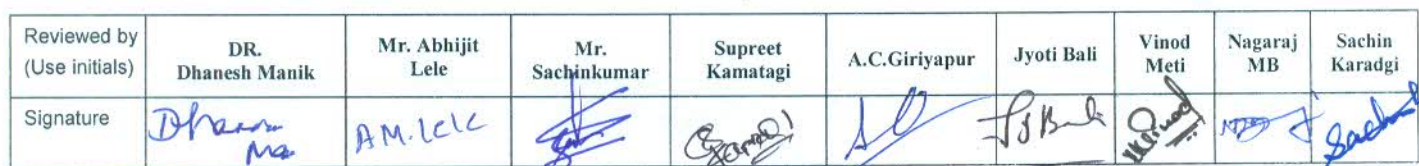 Reviewed by (Use initials) DR. Dhanesh Manik Mr. Abhijit Lele Mr. Sachinkumar Supreet Kamatagi A.C.Giriyapur Jyoti Bali Vinod Meti Nagaraj MB Sachin Karadgi
Signature A.M.Lele Vinod